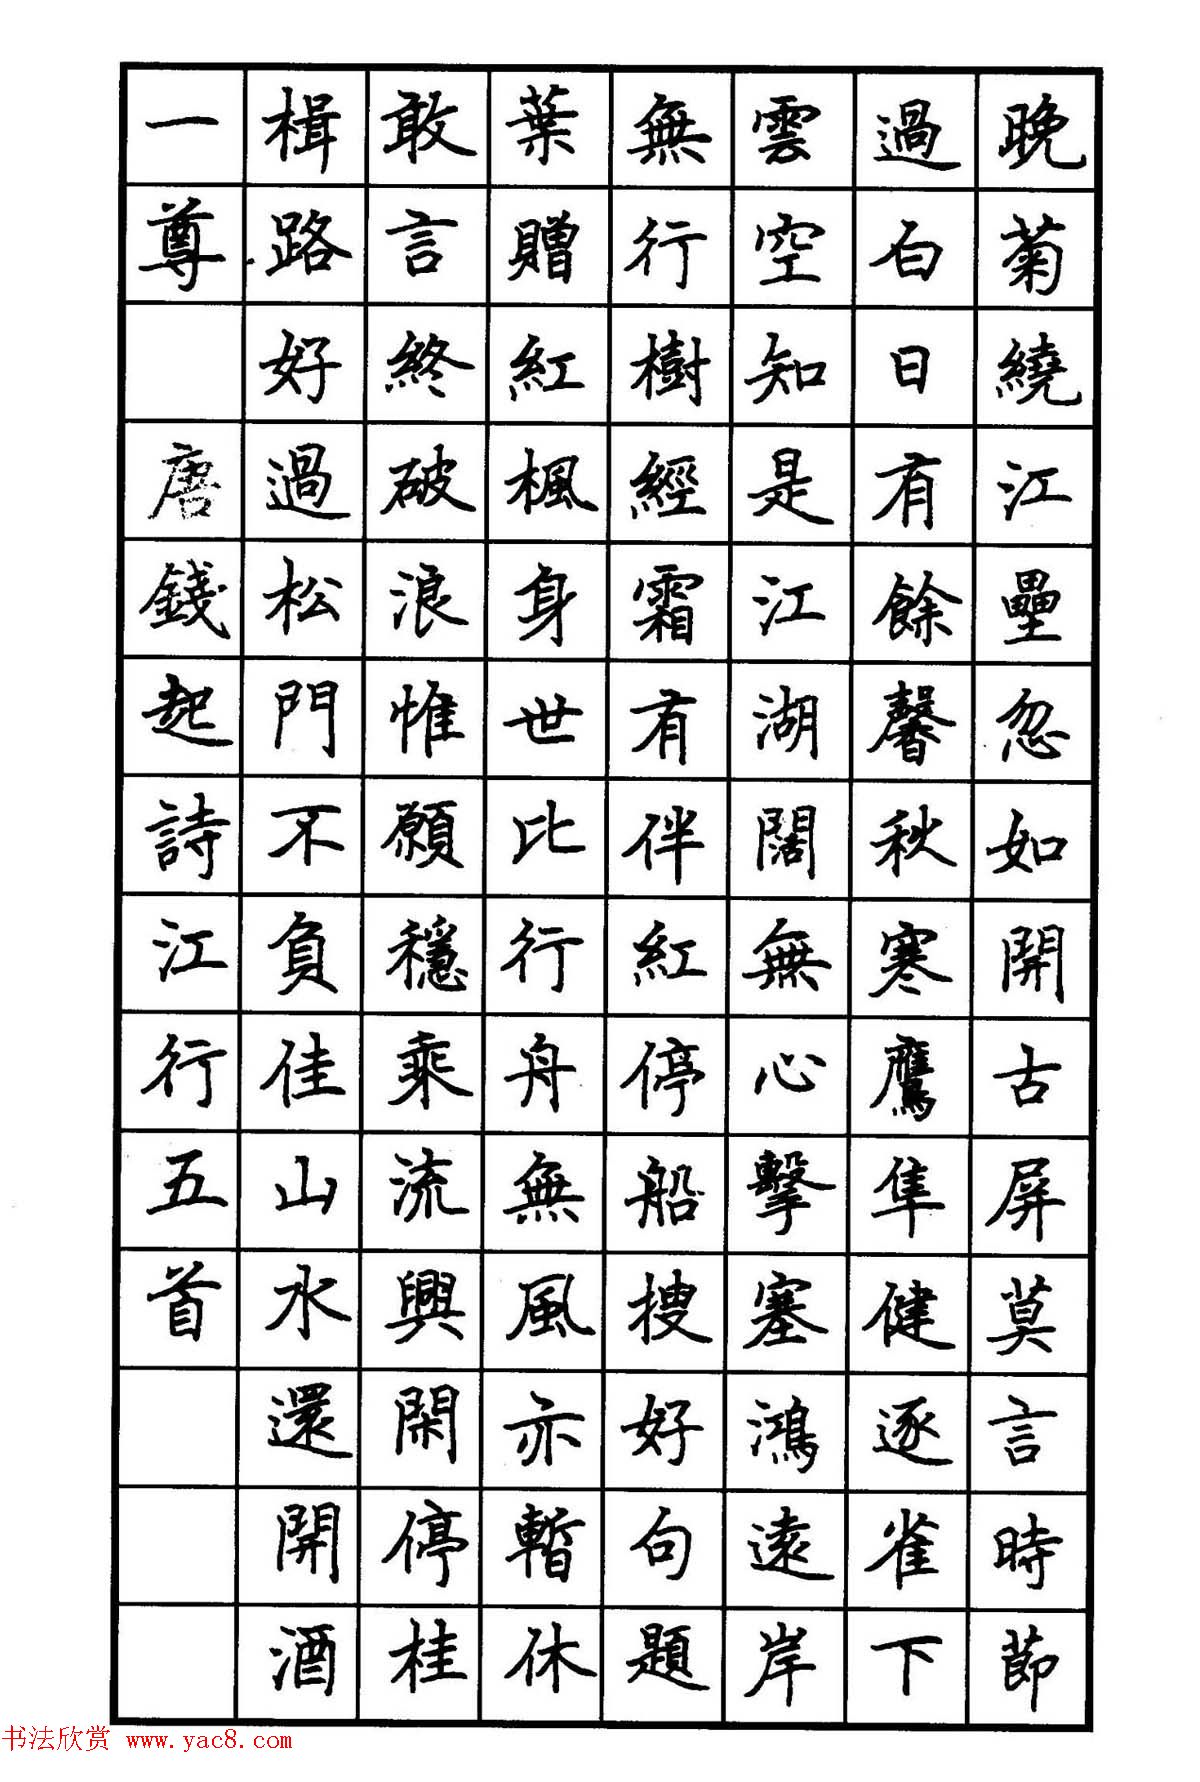 晚菊繞江壘忽如開古屏莫言時節
過白日有餘馨秋寒鷹隼健逐雀下
雲空知是江湖闊無心擊塞鴻遠岸
無行樹經霜有伴紅停船搜好句題
葉贈紅楓身世比行舟無風亦暫休
敢言終破浪惟願穩乘流興閑停桂
楫路好過松門不負佳山水還開酒
一尊 唐錢起詩江行五首
书法欣赏 www.yac8.com